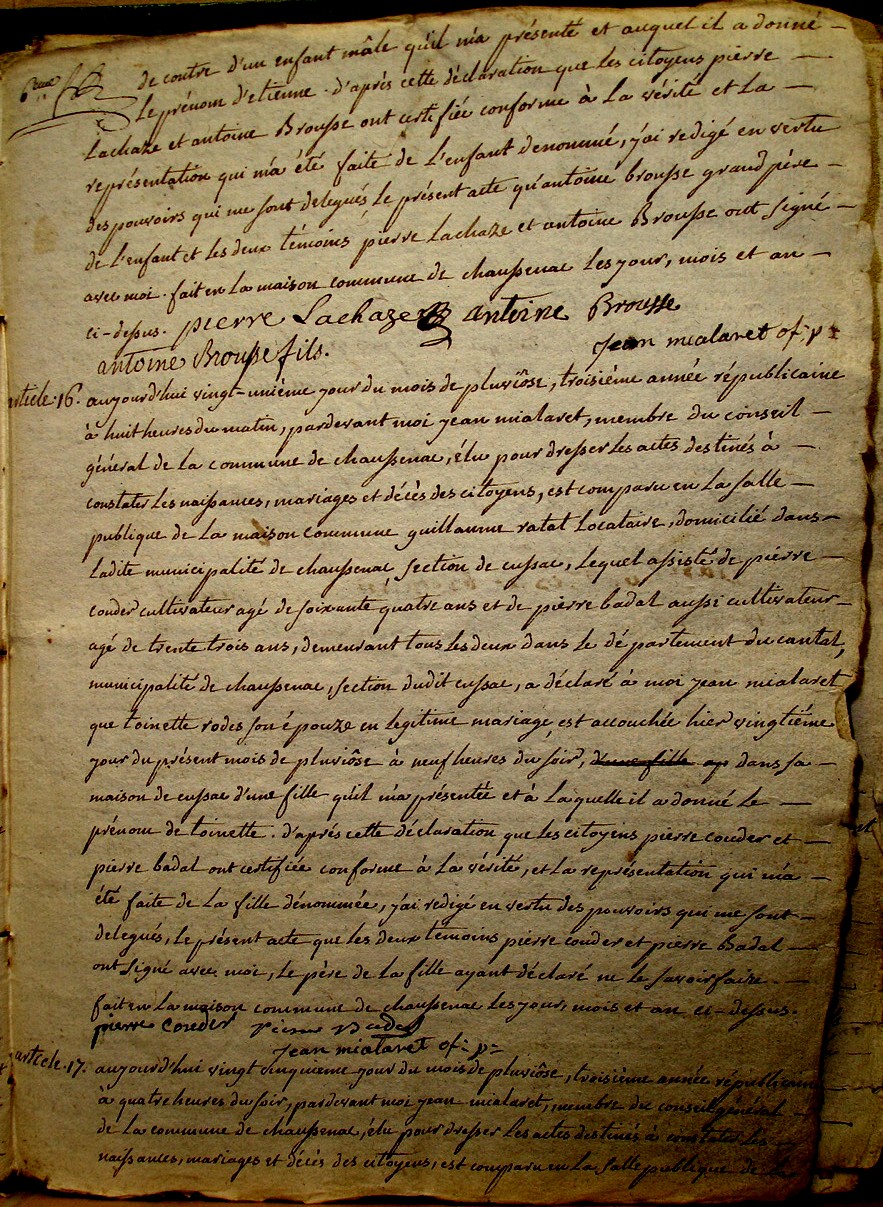 6eme de contre d'un enfant mâle qu'il m'a présenté et auquel il a donné
le prénom d'etienne. d'après cette déclaration que les citoyens pierre
Lachaze et antoine Brousse ont certifiée conforme à la vérité et la
représentation qui m'a été faite de l'enfant dénommé, j'ai redigé en vertu
des pouvoirs qui me sont delegués, le présent acte qu'antoine brousse grand père
de l'enfant et les deux témoins pierre Lachaze et antoine Brousse ont signé
avec moi. fait en la maison commune de chaussenac les jour, mois et an
ci-dessus. pierre Lachaze antoine Brousse
antoine Brousse fils. Jean mialaret of: p:
article. 16. aujourd'hui vingt-unième jour du mois de pluviôse, troisième année républicaine
à huit heures du matin, pardevant moi jean mialaret, membre du conseil
général de la commune de chaussenac, élu pour dresser les actes destinés à
constater les naissances, mariages et décès des citoyens, est comparu en la salle
publique de la maison commune guillaume ratat locataire, domicilié dans
ladite municipalité de chaussenac, section de cussac, lequel assisté de pierre
couder cultivateur agé de soixante quatre ans et de pierre badal aussi cultivateur
agé de trente trois ans, demeurant tous les deux dans le département du cantal,
municipalité de chaussenac, section dudit cussac, a déclaré à moi jean mialaret
que toinette rodes son épouze en legitime mariage, est accouchée hier vingtième
jour du présent mois de pluviôse à neuf heures du soir, d'une fille dans sa
maison de cussac d'une fille qu'il m'a présentée et à laquelle il a donné le
prénom de toinette. d'après cette déclaration que les citoyens pierre couder et
pierre badal ont certifiée conforme à la vérité, et la représentation qui m'a
été faite de la fille dénommée, j'ai redigé en vertu des pouvoirs qui me sont
delegués, le présent acte que les deux témoins pierre couder et pierre Badal
ont signé avec moi, le père de la fille ayant déclaré ne le savoir faire.
fait en la maison commune de chaussenac les jour, mois et an ci-dessus.
pierre couder pierre Badal
jean mialaret of: p:
article. 17. aujourd'hui vingt cinquieme jour du mois de pluviôse, troisième année républicaine
à quatre heures du soir, pardevant moi jean mialaret, membre du conseil général
de la commune de chaussenac, élu pour dresser les actes destinés à constater les
naissances, mariages et décès des citoyens, est comparu en la salle publique de la